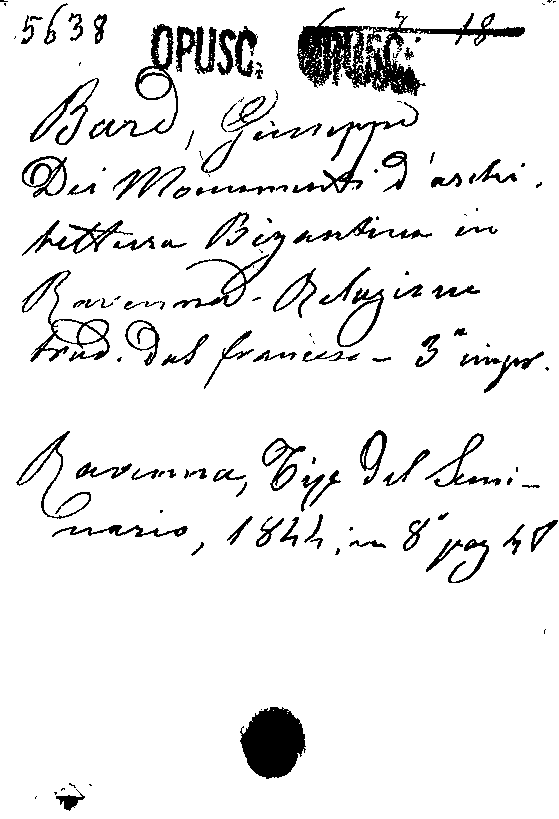 5638 OPUSC. OPUSC. 18
Bard, Giuseppe
Dei Monumenti d'archi-
tettura Bizantina in
Ravenna - Relazione
trad. dal francese - 3ª impr.
Ravenna, Tip. del Semi-
nario, 1844, in 8° pag 48